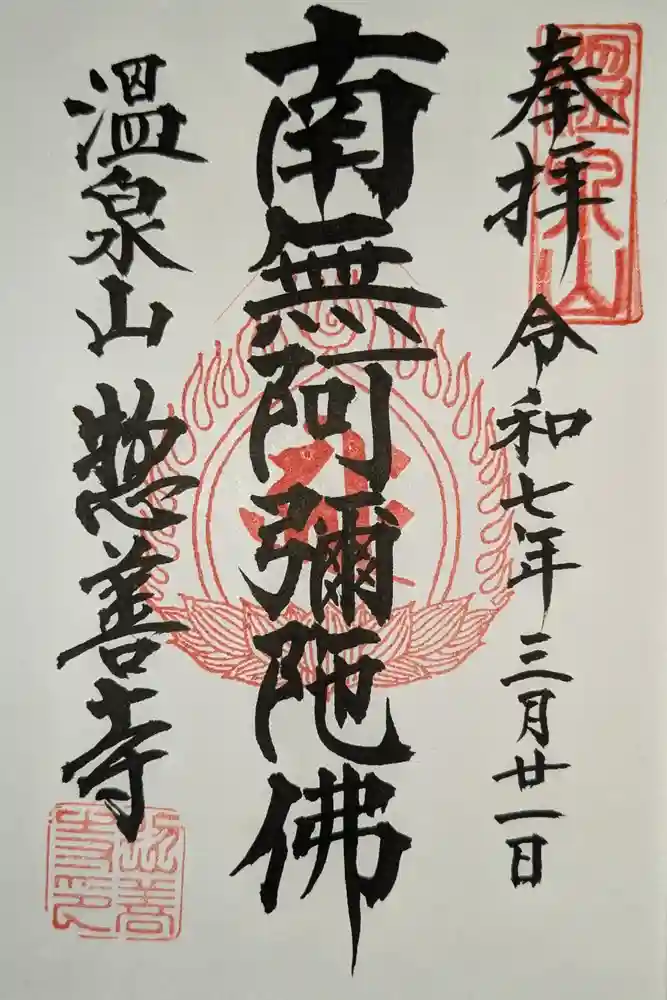 奉拝
令和七年三月廿一日
南無阿彌陀佛
温泉山 惣善寺
温泉山